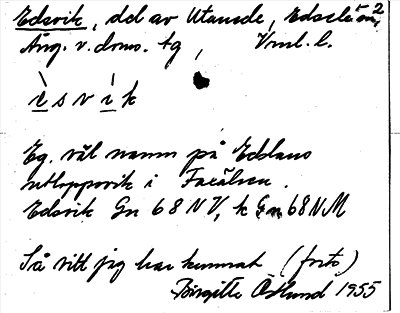 Edsvik, del av Utanede, Edsele sn, 2
Ång. v. doms. tg, Vnml. l.
è s v ì k
Eg. väl namn på Edslans
utloppsvik i Faxälven.
Edsvik Gn 68 NV, k Gn 68 NM
Så vitt jag har kunnat (forts)
Birgitta Östlund 1955